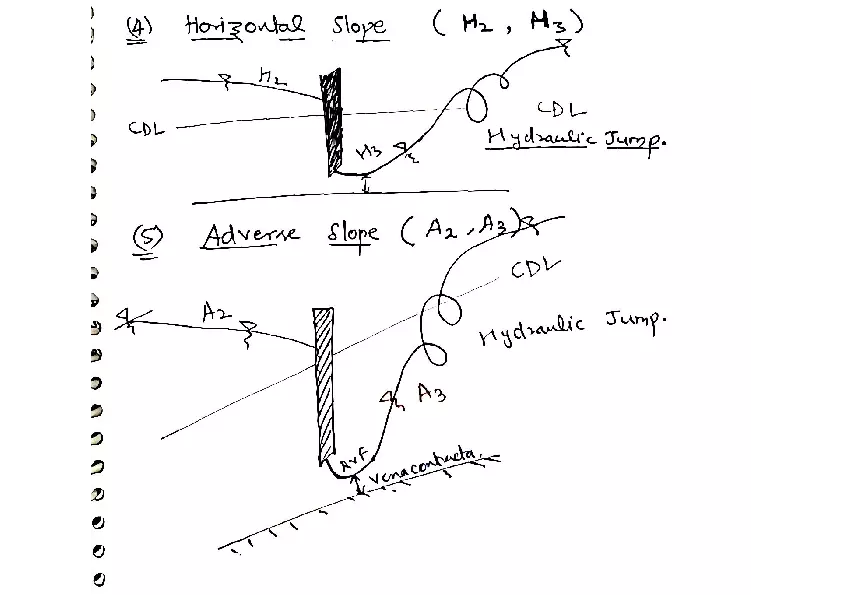 (4) Horizontal Slope (H2, H3)
H2
CDL
H3
CDL
Hydraulic Jump.
(5) Adverse Slope (A2, A3)
CDL
A2
Hydraulic Jump.
A3
Venacontracta.